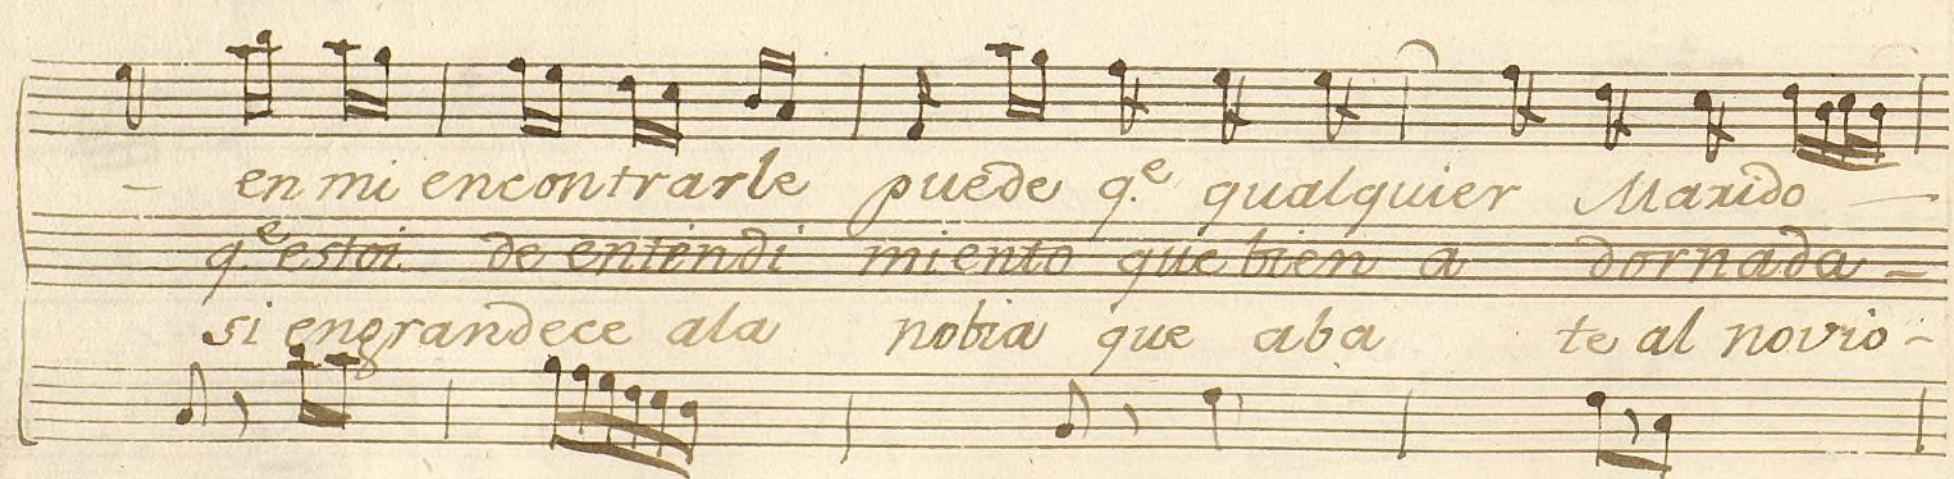 - en mi encontrarle puede q.e qualquier Marido -
q.e estoi de entendi miento que bien a dornada -
si engrandece ala nobia que aba te al novio -